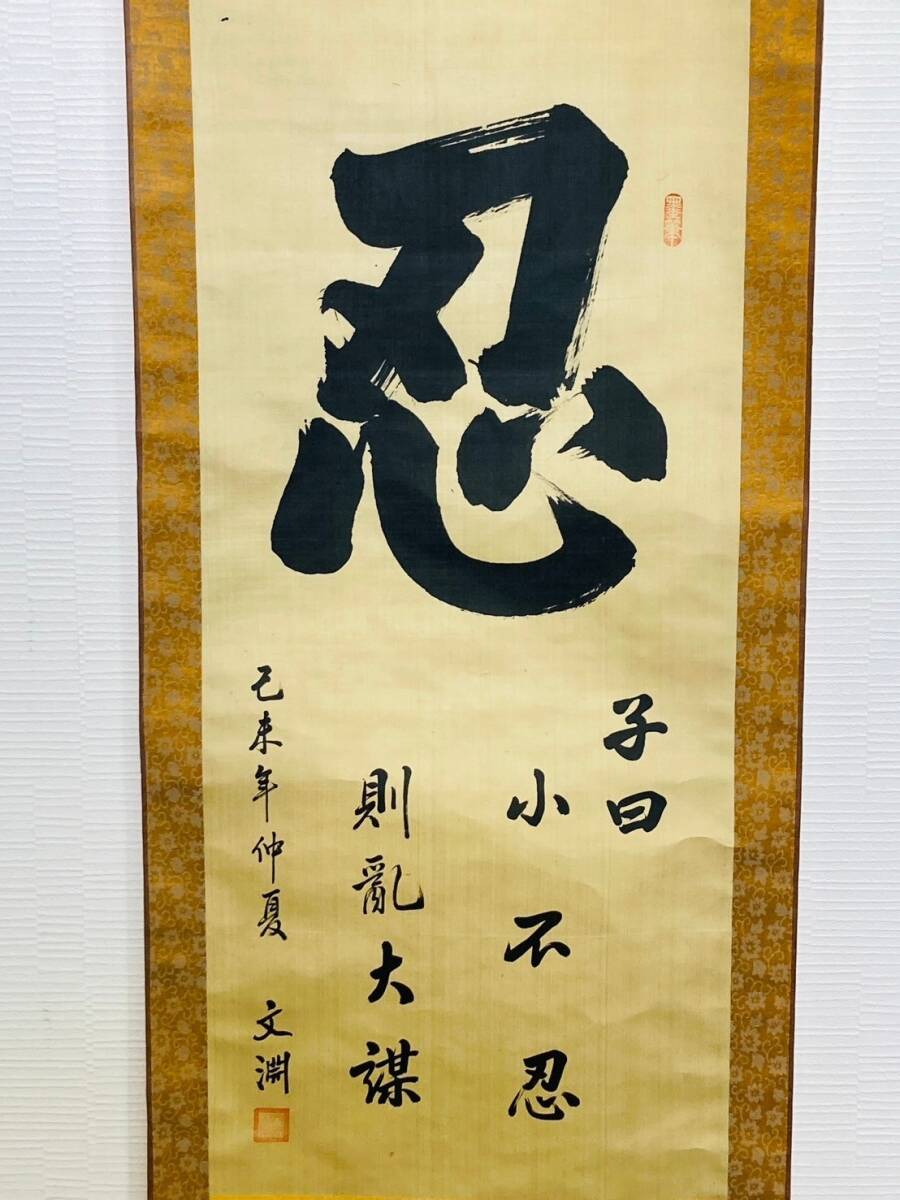 忍
子曰
小不忍
則亂大謀
己未年仲夏 文淵